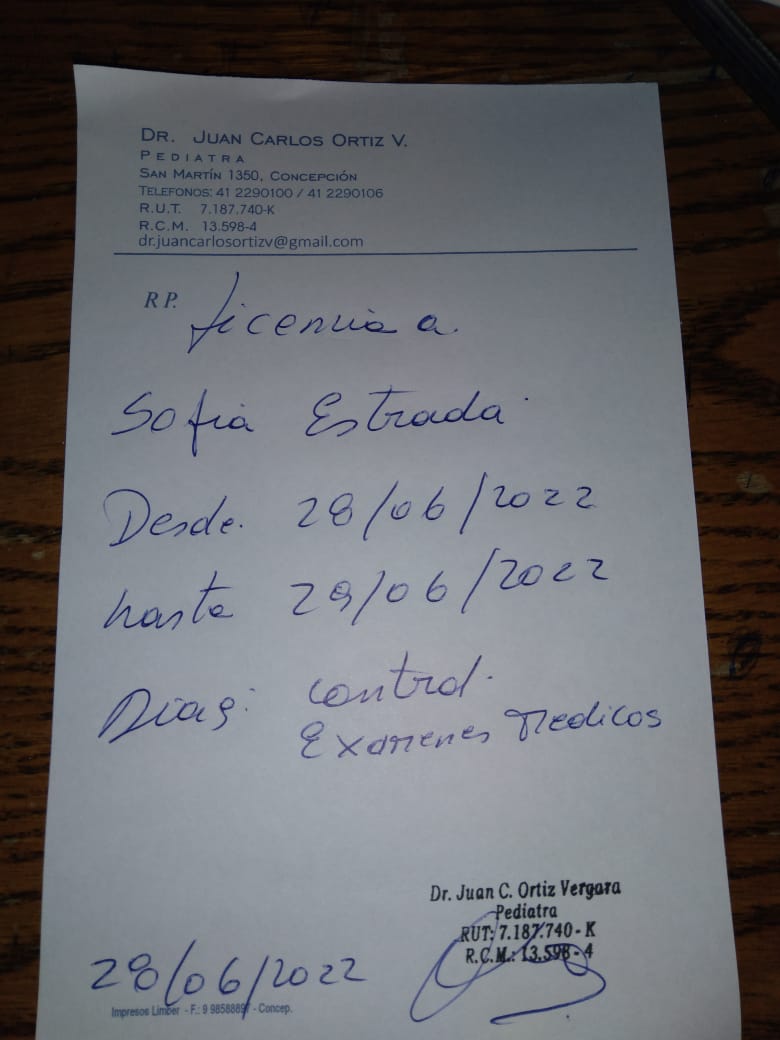 DR. JUAN CARLOS ORTIZ V.
PEDIATRA
SAN MARTÍN 1350, CONCEPCIÓN
TELEFONOS: 41 2290100 / 41 2290106
R.U.T. 7.187.740-K
R.C.M. 13.598-4
dr.juancarlosortizv@gmail.com
RP. Licencia a.
Sofia Estrada
Desde. 28/06/2022
hasta 29/06/2022
Diag: control.
Examenes Medicos
Dr. Juan C. Ortiz Vergara
Pediatra
RUT: 7.187.740 - K
R.C.M.: 13.598 - 4
28/06/2022
Impresos Limber - F.: 9 - Concep.